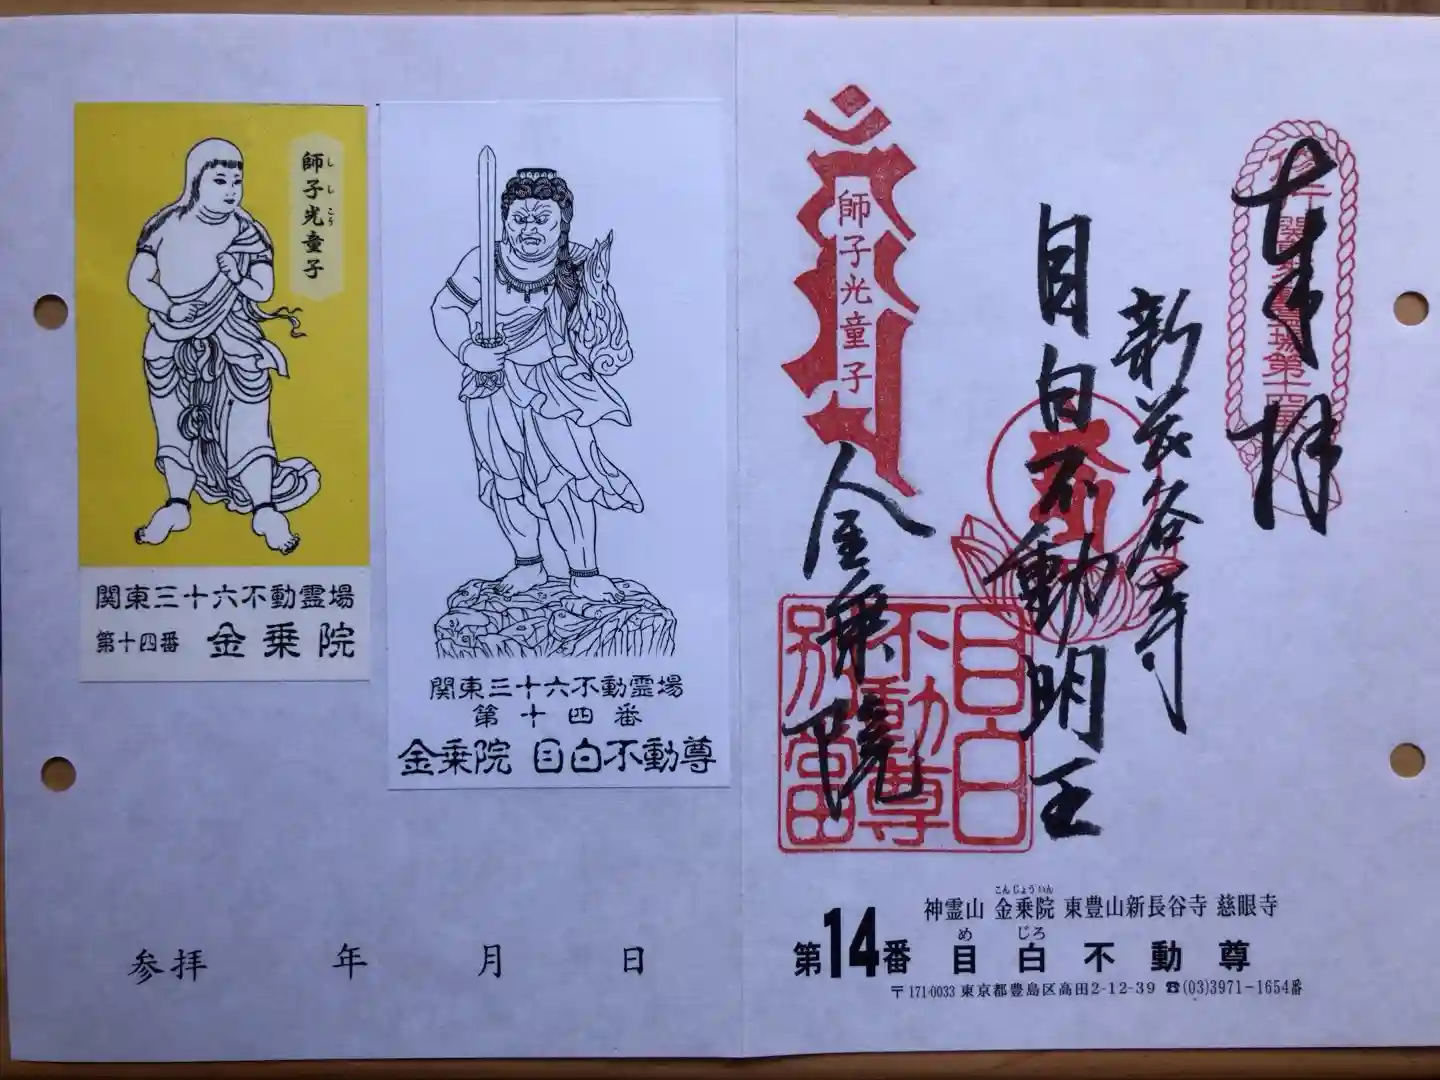 師子光童子
し
し
こう
関東三十六不動霊場
第十四番 金乗院
関東三十六不動霊場
第十四番
金乗院 目白不動尊
参拝 年 月 日
奉拝
新長谷寺
目白不動明王
金乗院
師子光童子
目白
不動尊
別當
こんじょういん
神霊山 金乗院 東豊山新長谷寺 慈眼寺
め じろ
第14番 目白不動尊
〒171-0033 東京都豊島区高田2-12-39 ☎(03)3971-1654番